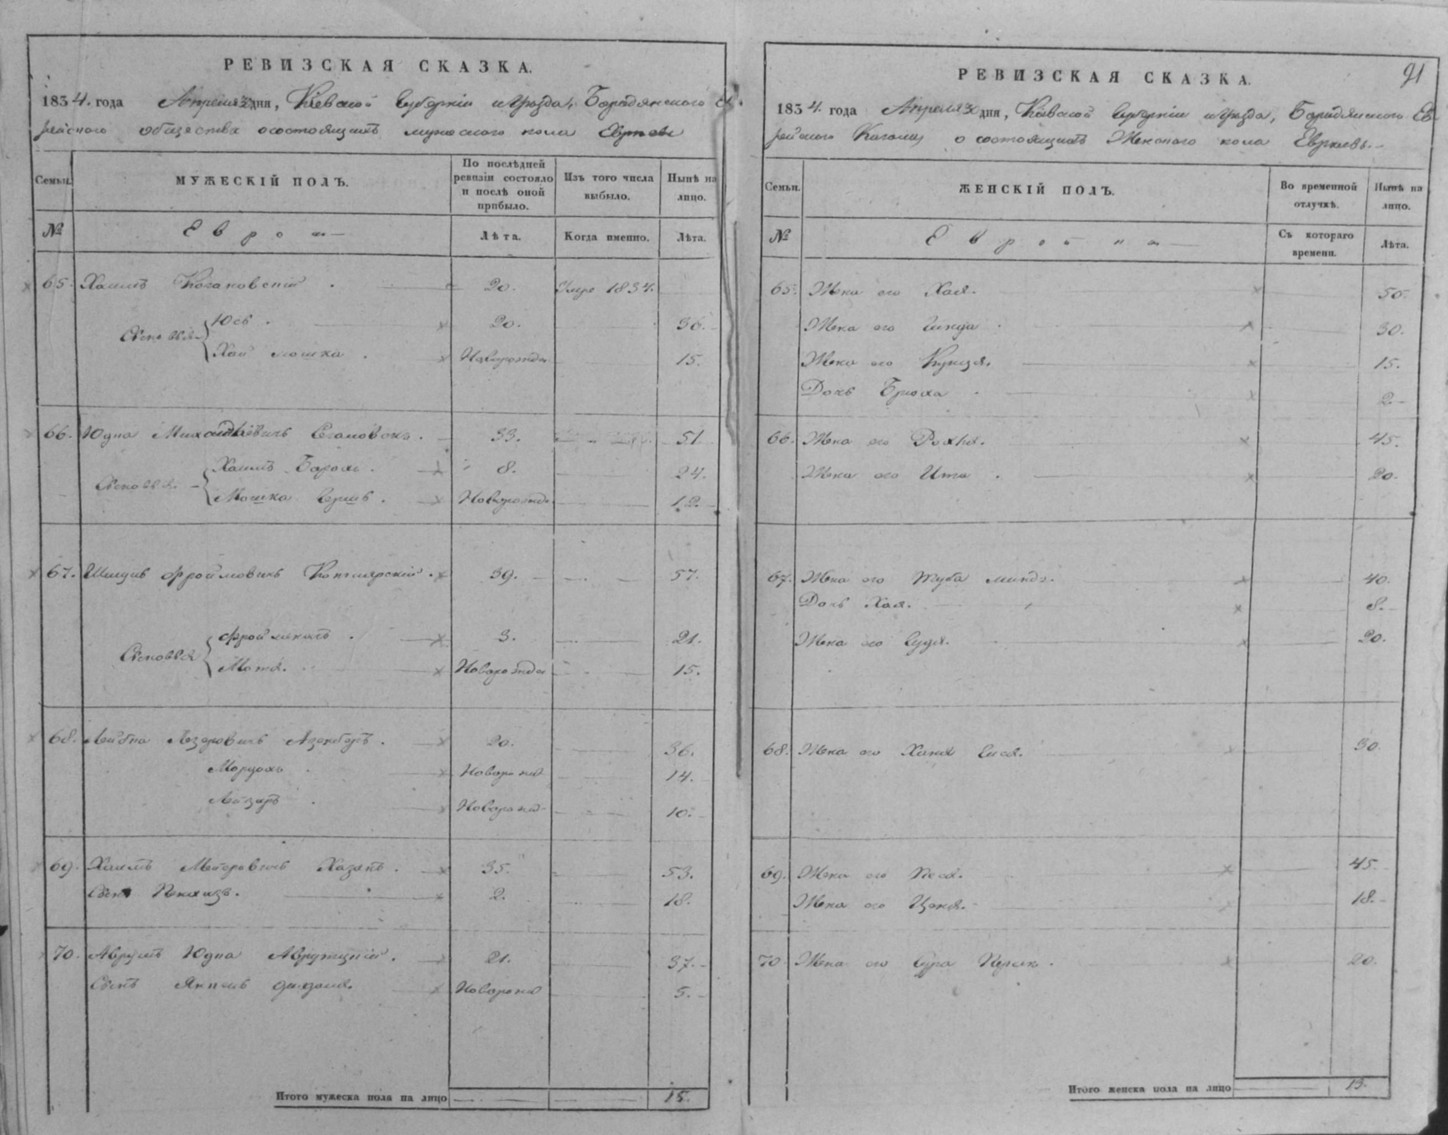 РЕВИЗСКАЯ СКАЗКА.
1834. года Апреля дня, Кіевской Губерніи и Уезда, Бородянского Ев
рейского общества о состоящихъ мужеского пола Евреевъ
Семьи. МУЖЕСКІЙ ПОЛЪ. По послѣдней ревизіи состояло и послѣ оной прибыло. Изъ того числа выбыло. Нынѣ на лицо.
№ Евреи Лѣта. Когда именно. Лѣта.
65. Хаимъ Когановскій 20. Умре 1834.
Сыновья Юсь 20. 36.
Мошка Новорожде 15.
66. Юдка 33. 51
Сыновья Хаимъ Борохъ 8. 24.
Мошка Новорожде 12.
67. Фроимовичъ 39. 57.
Сыновья Фроимъ 3. 21.
Мотя. Новорожде 15.
68. Лейбка Лезеровичъ 20. 36.
Мордохъ Новорожд 14.
Лезеръ Новорожд 10.
69. Хаимъ Мееровичъ Хазанъ 35. 53.
Сынъ 2. 18.
70. Аврумъ Юдка 21. 37.
Сынъ Янкель Новорожд 5.
Итого мужеска пола на лицо 15.
91
РЕВИЗСКАЯ СКАЗКА.
1834. года Апреля дня, Кіевской Губерніи и Уезда, Бородянского Ев
рейского Кагала о состоящихъ Женского пола Евреевъ
Семьи. ЖЕНСКІЙ ПОЛЪ. Во временной отлучкѣ. Нынѣ на лицо.
№ Еврейки Съ котораго времени. Лѣта.
65. Жена его Хая. 50.
Жена его 30.
Жена его 15.
Дочь Брюха 2
66. Жена его Рохля. 45.
Жена его Ита 20.
67. Жена его 40.
Дочь Хая. 8.
Жена его 20.
68. Жена его 30.
69. Жена его Песя. 45.
Жена его 18.
70. Жена его Сура Перль 20.
Итого женска пола на лицо 13.